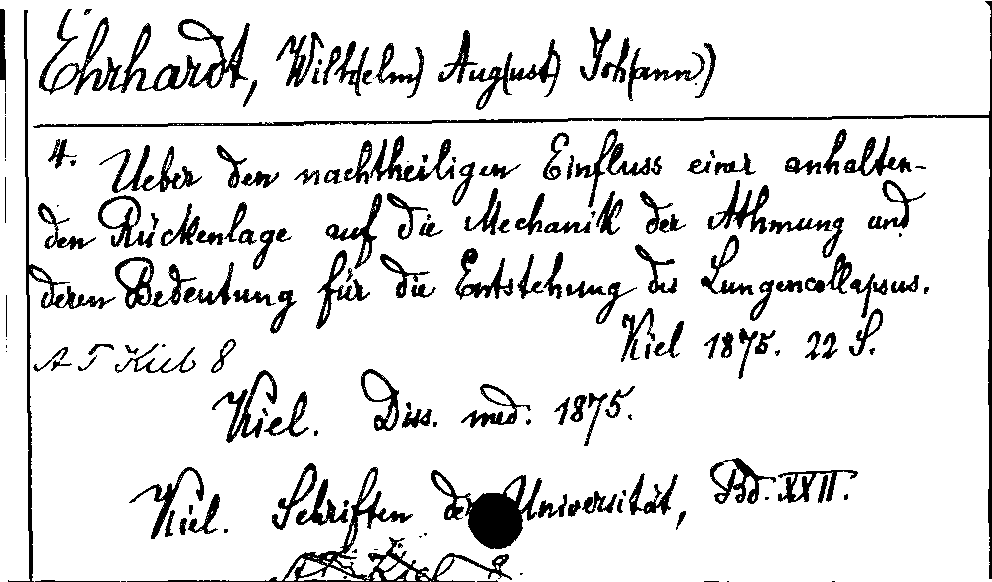 Ehrhardt, Wilh(elm) Aug(ust) Joh(ann))
4. Ueber den nachtheiligen Einfluss einer anhalten-
den Rückenlage auf die Mechanik der Athmung und
deren Bedeutung für die Entstehung des Lungencollapsus.
Kiel 1875. 22 S.
AT Kiel 8
Kiel. Diss. med. 1875.
Kiel. Schriften der Universität, Bd. XXII.
AT. Kiel 8